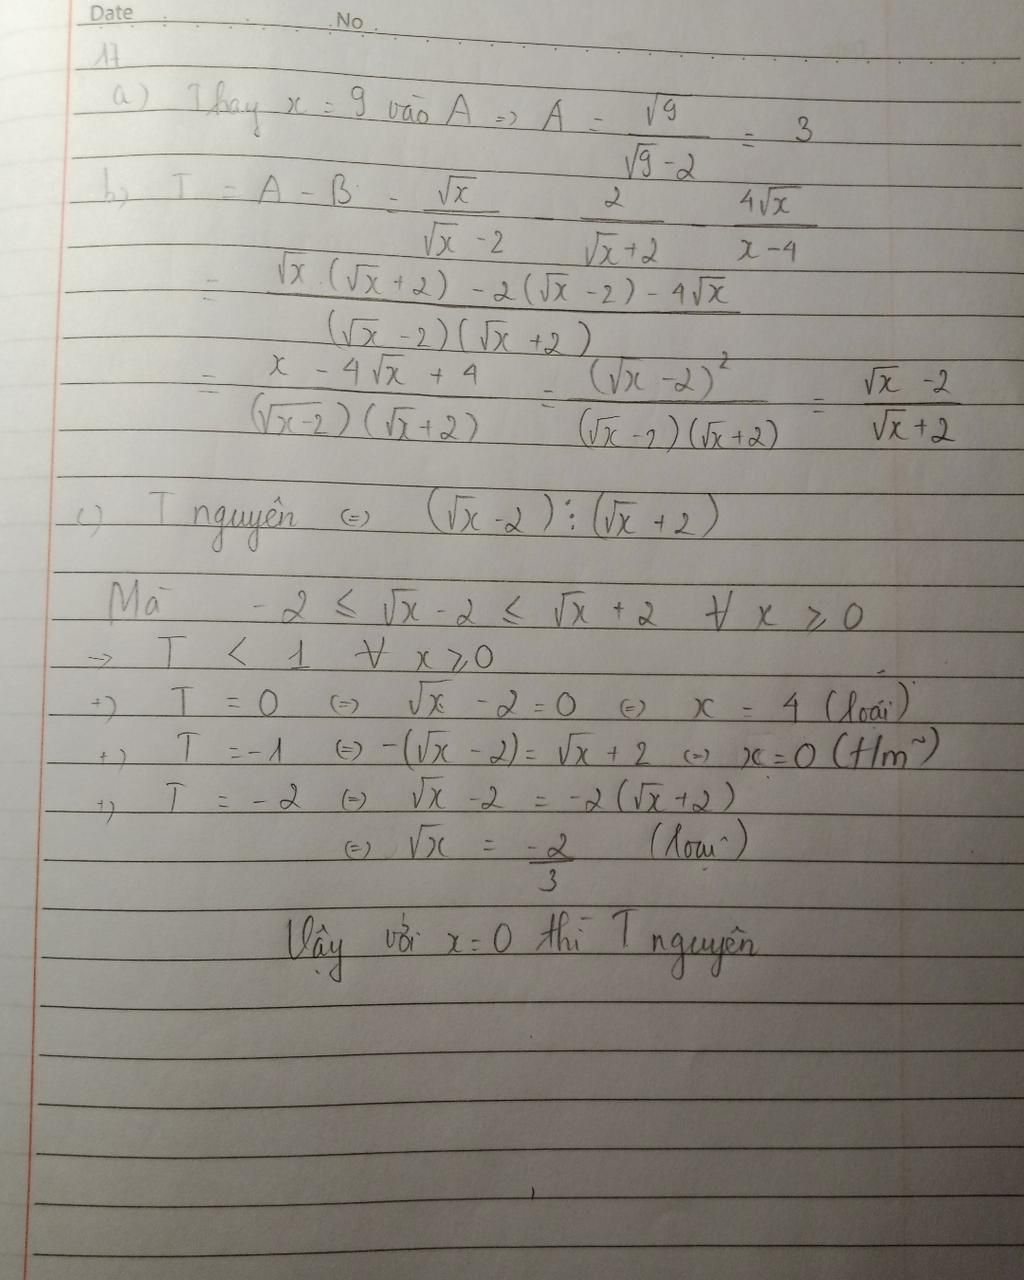 Date No
17
a) Thay x = 9 vào A => A = √9 / (√9 - 2) = 3
b) T = A - B = √x / (√x - 2) - 2 / (√x + 2) - 4√x / (x - 4)
= (√x . (√x + 2) - 2(√x - 2) - 4√x) / ((√x - 2)(√x + 2))
= (x - 4√x + 4) / ((√x-2)(√x + 2)) = (√x - 2)² / ((√x - 2)(√x + 2)) = (√x - 2) / (√x + 2)
c) T nguyên <=> (√x - 2) ⋮ (√x + 2)
Mà -2 ≤ √x - 2 ≤ √x + 2 ∀ x ≥ 0
-> T < 1 ∀ x ≥ 0
+) T = 0 <=> √x - 2 = 0 <=> x = 4 (loại)
+) T = -1 <=> -(√x - 2) = √x + 2 <=> x = 0 (t/m)
+) T = -2 <=> √x - 2 = -2(√x + 2)
<=> √x = -2/3 (loại)
Vậy với x = 0 thì T nguyên